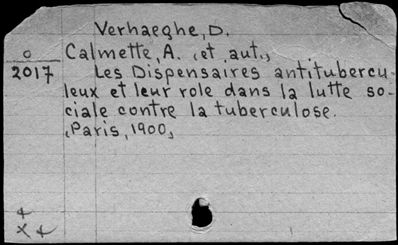 Verhaeghe, D.
o Calmette, A. (et aut.)
2017 Les Dispensaires antitubercu-
leux et leur role dans la lutte so-
ciale contre la tuberculose.
(Paris, 1900)
+
x +